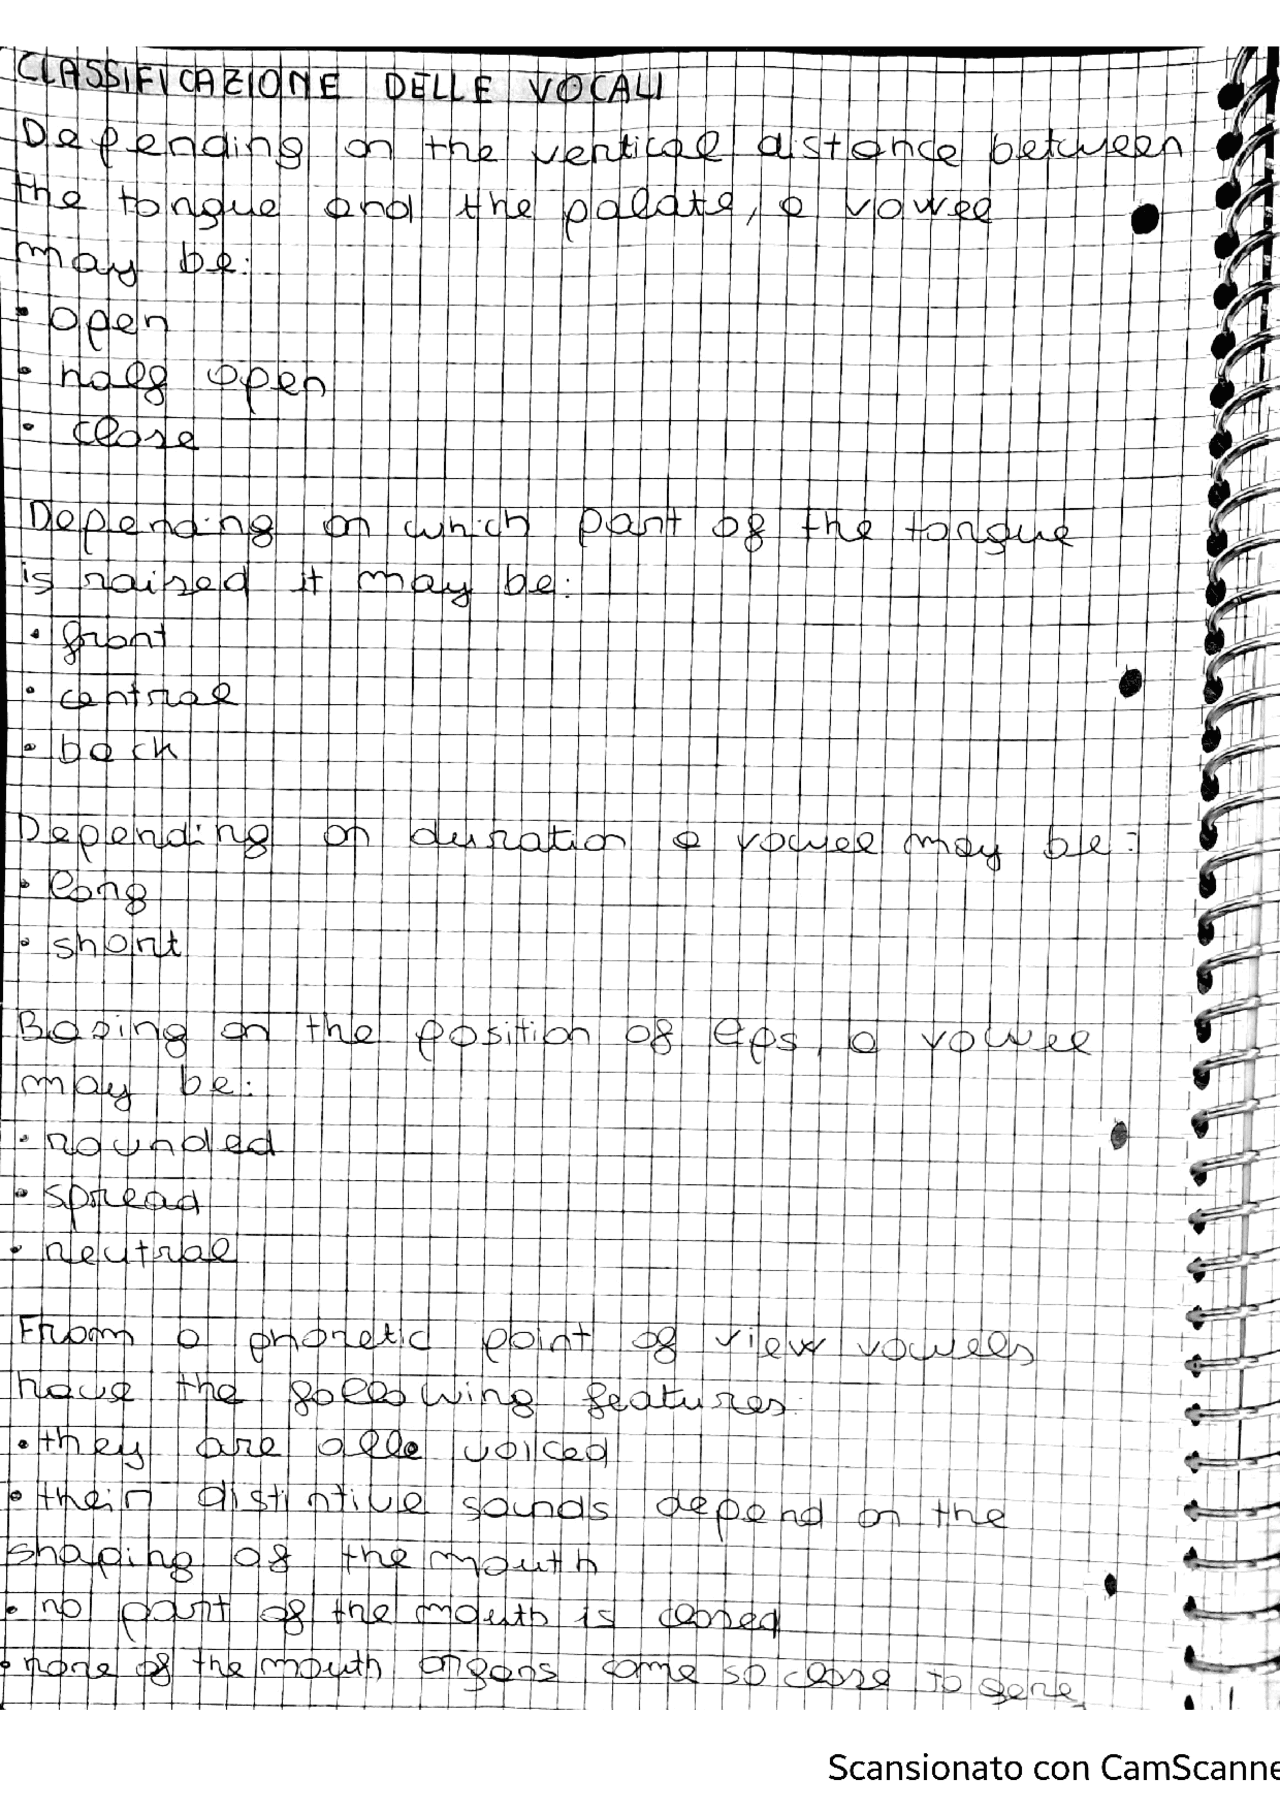 CLASSIFICAZIONE DELLE VOCALI
Depending on the vertical distance between
the tongue and the palate, a vowel
may be:
• open
• half open
• close
Depending on which part of the tongue
is raised it may be:
• front
• central
• back
Depending on duration a vowel may be:
• long
• short
Basing on the position of lips, a vowel
may be:
• rounded
• spread
• neutral
From a phonetic point of view vowels
have the following features:
• they are alle voiced
• their distintive sounds depend on the
shaping of the mouth
• no part of the mouth is closed
• none of the mouth organs come so close to gene
Scansionato con CamScanne